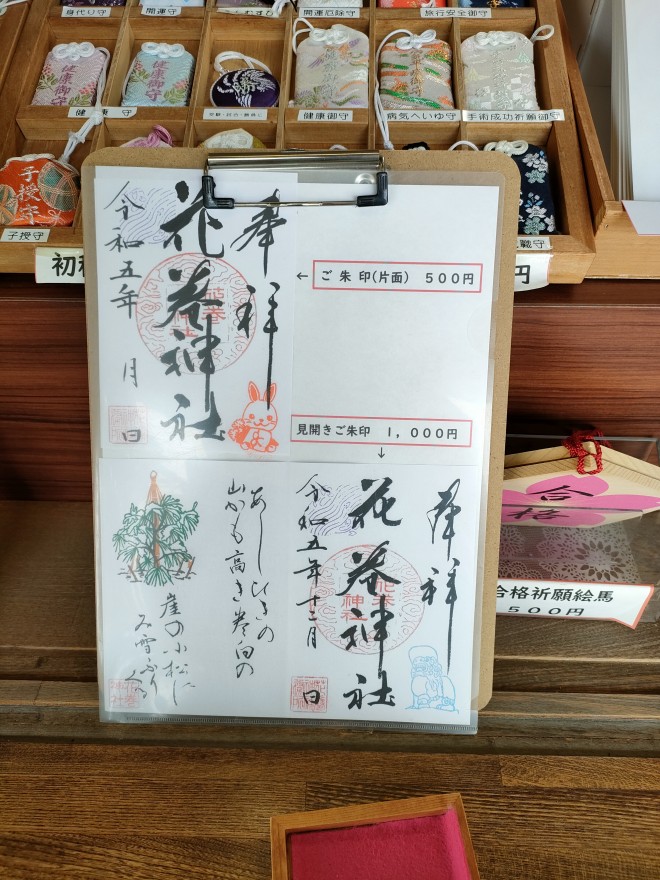 身代り守
開運守
開運厄除守
旅行安全守
健康御守
健康御守
健康守
健康御守
病気へいゆ守
手術成功祈願御守
子授守
子授守
職守
円
奉祥
花巻神社
令和五年 月 日
← ご朱印(片面) 500円
見開きご朱印 1,000円
↓
奉祥
花巻神社
令和五年十二月 日
あしひきの
山かも高き巻向の
崖の小松に
み雪ふりくる
合格
合格祈願絵馬
500円